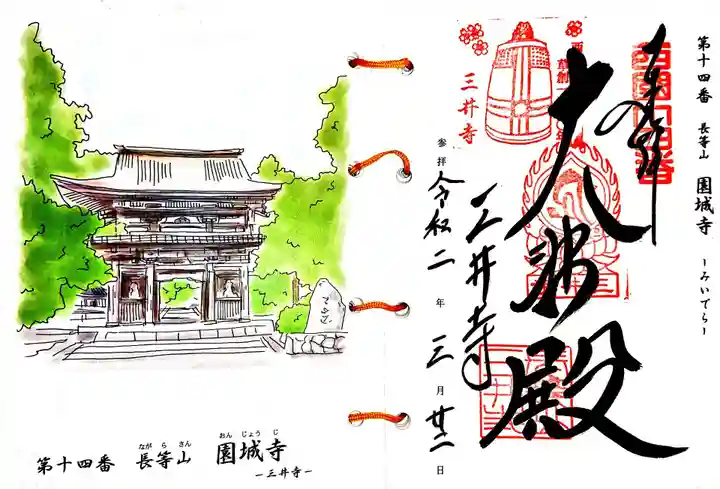 第十四番 長等山 園城寺 ～みいでら～
奉拝
大悲殿
三井寺
参拝 令和二年 三月廿二日
三井寺
西国
草創
ながらさん おんじょうじ
第十四番 長等山 園城寺
－三井寺－